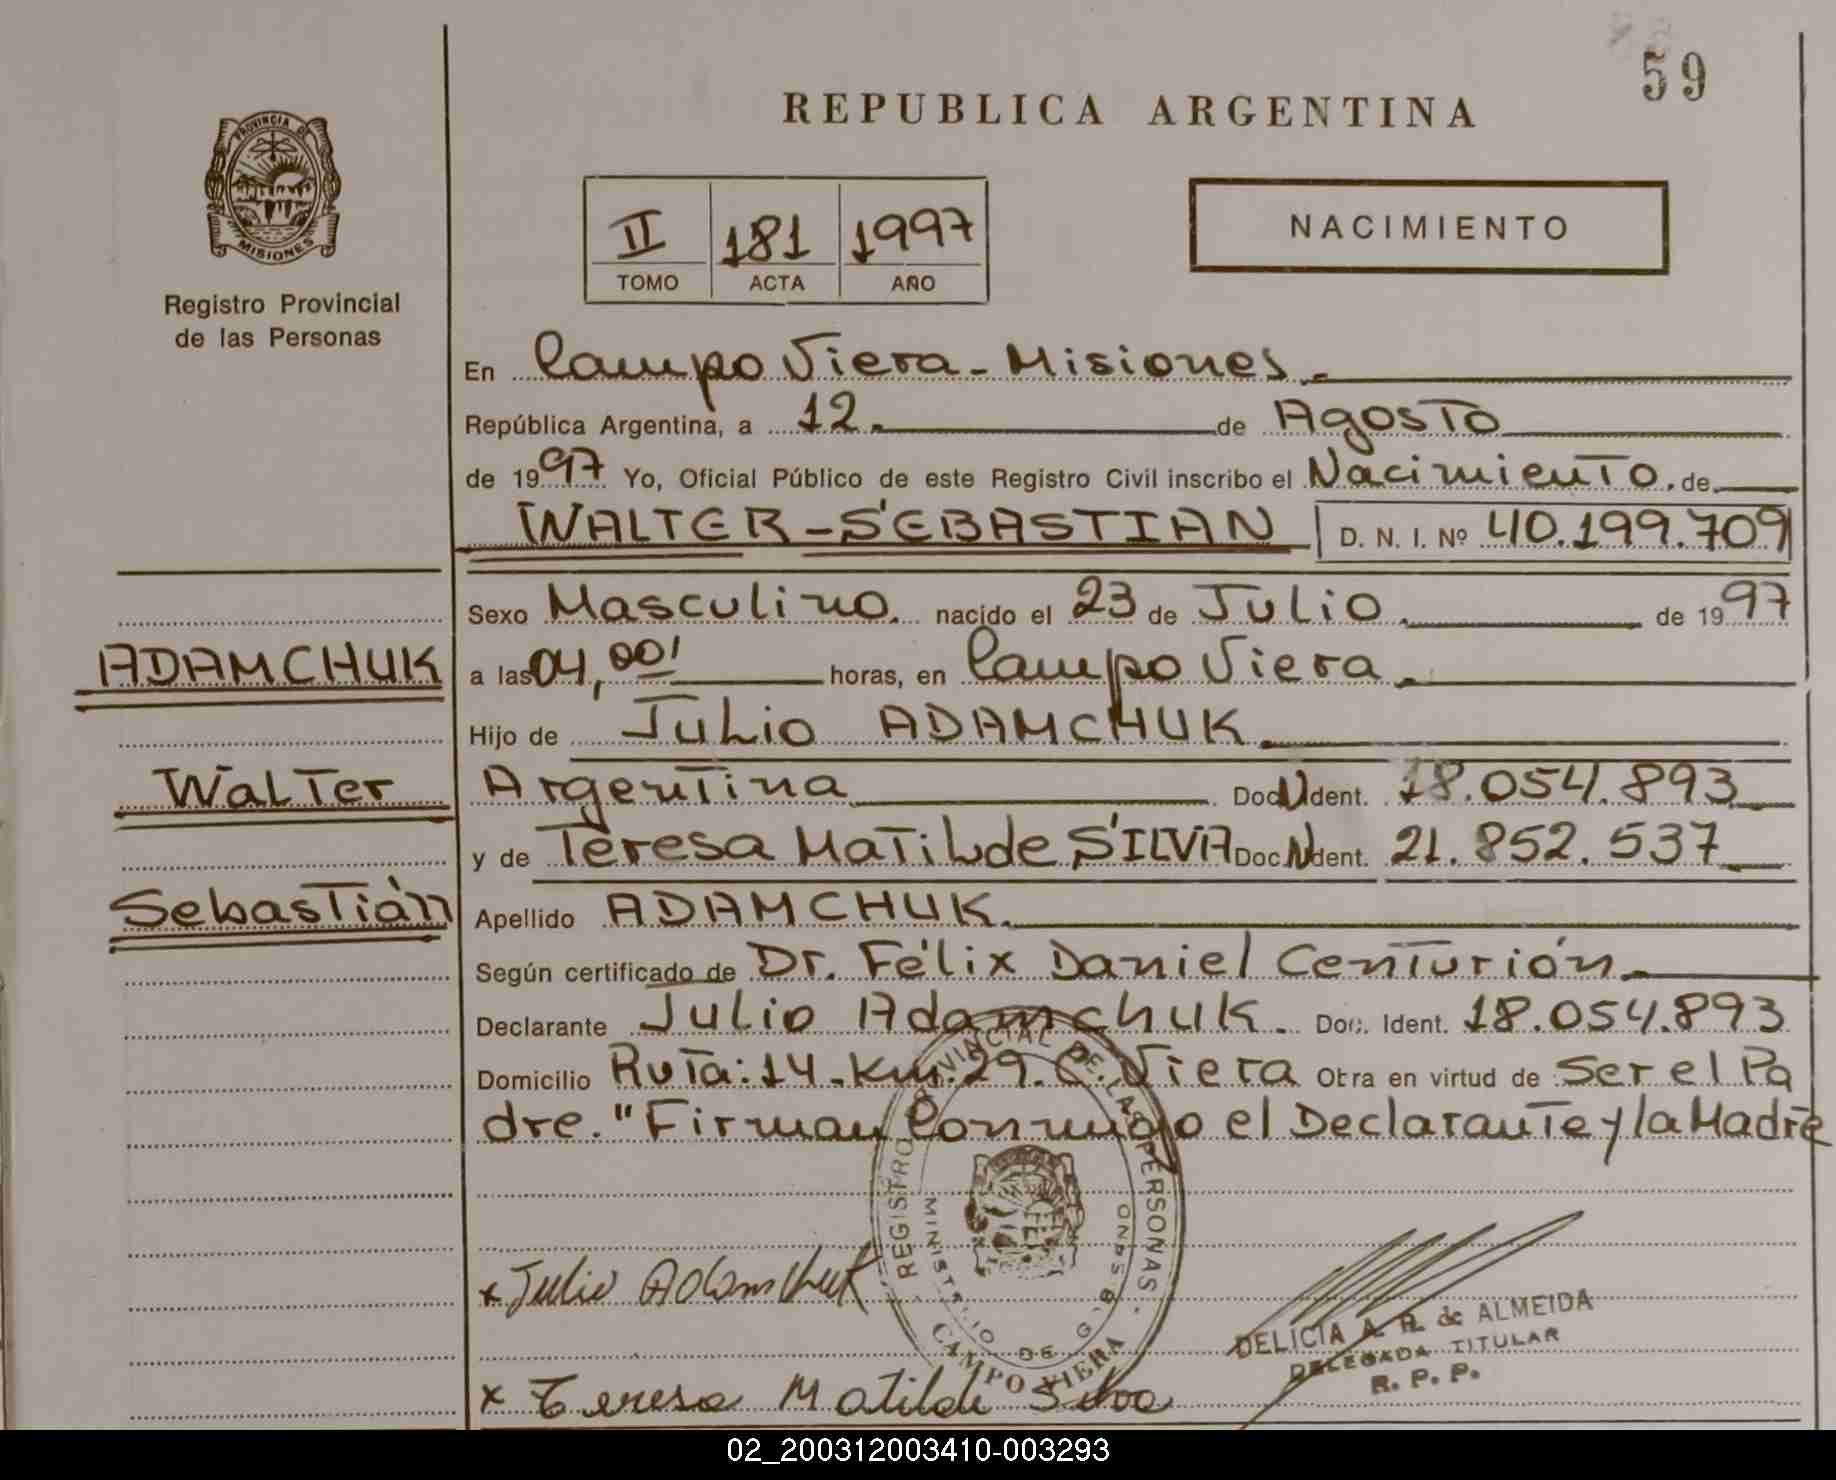 59
REPUBLICA ARGENTINA
PROVINCIA DE
MISIONES
Registro Provincial
de las Personas
II 181 1997
TOMO ACTA AÑO
NACIMIENTO
En Campo Viera - Misiones.
República Argentina, a 12. de Agosto
de 1997 Yo, Oficial Público de este Registro Civil inscribo el Nacimiento. de
WALTER - SEBASTIAN D. N. I. Nº 40.199.709
Sexo Masculino. nacido el 23 de Julio. de 1997
ADAMCHUK
a las 04,00' horas, en Campo Viera.
Hijo de Julio ADAMCHUK
Walter
Argentina Doc. N Ident. 18.054.893
y de Teresa Matilde SILVA Doc. N Ident. 21.852.537
Sebastián
Apellido ADAMCHUK.
Según certificado de Dr. Félix Daniel Centurión.
Declarante Julio Adamchuk. Doc. Ident. 18.054.893
Domicilio Ruta: 14. Km. 29. C. Viera Obra en virtud de Ser el Pa
dre. "Firman Conmigo el Declarante y la Madre
REGISTRO PROVINCIAL DE LAS PERSONAS
MINISTERIO DE GOB
CAMPO VIERA
x Julio Adamchuk
DELICIA A. R. de ALMEIDA
DELEGADA TITULAR
R. P. P.
x Teresa Matilde Silva
02_200312003410-003293